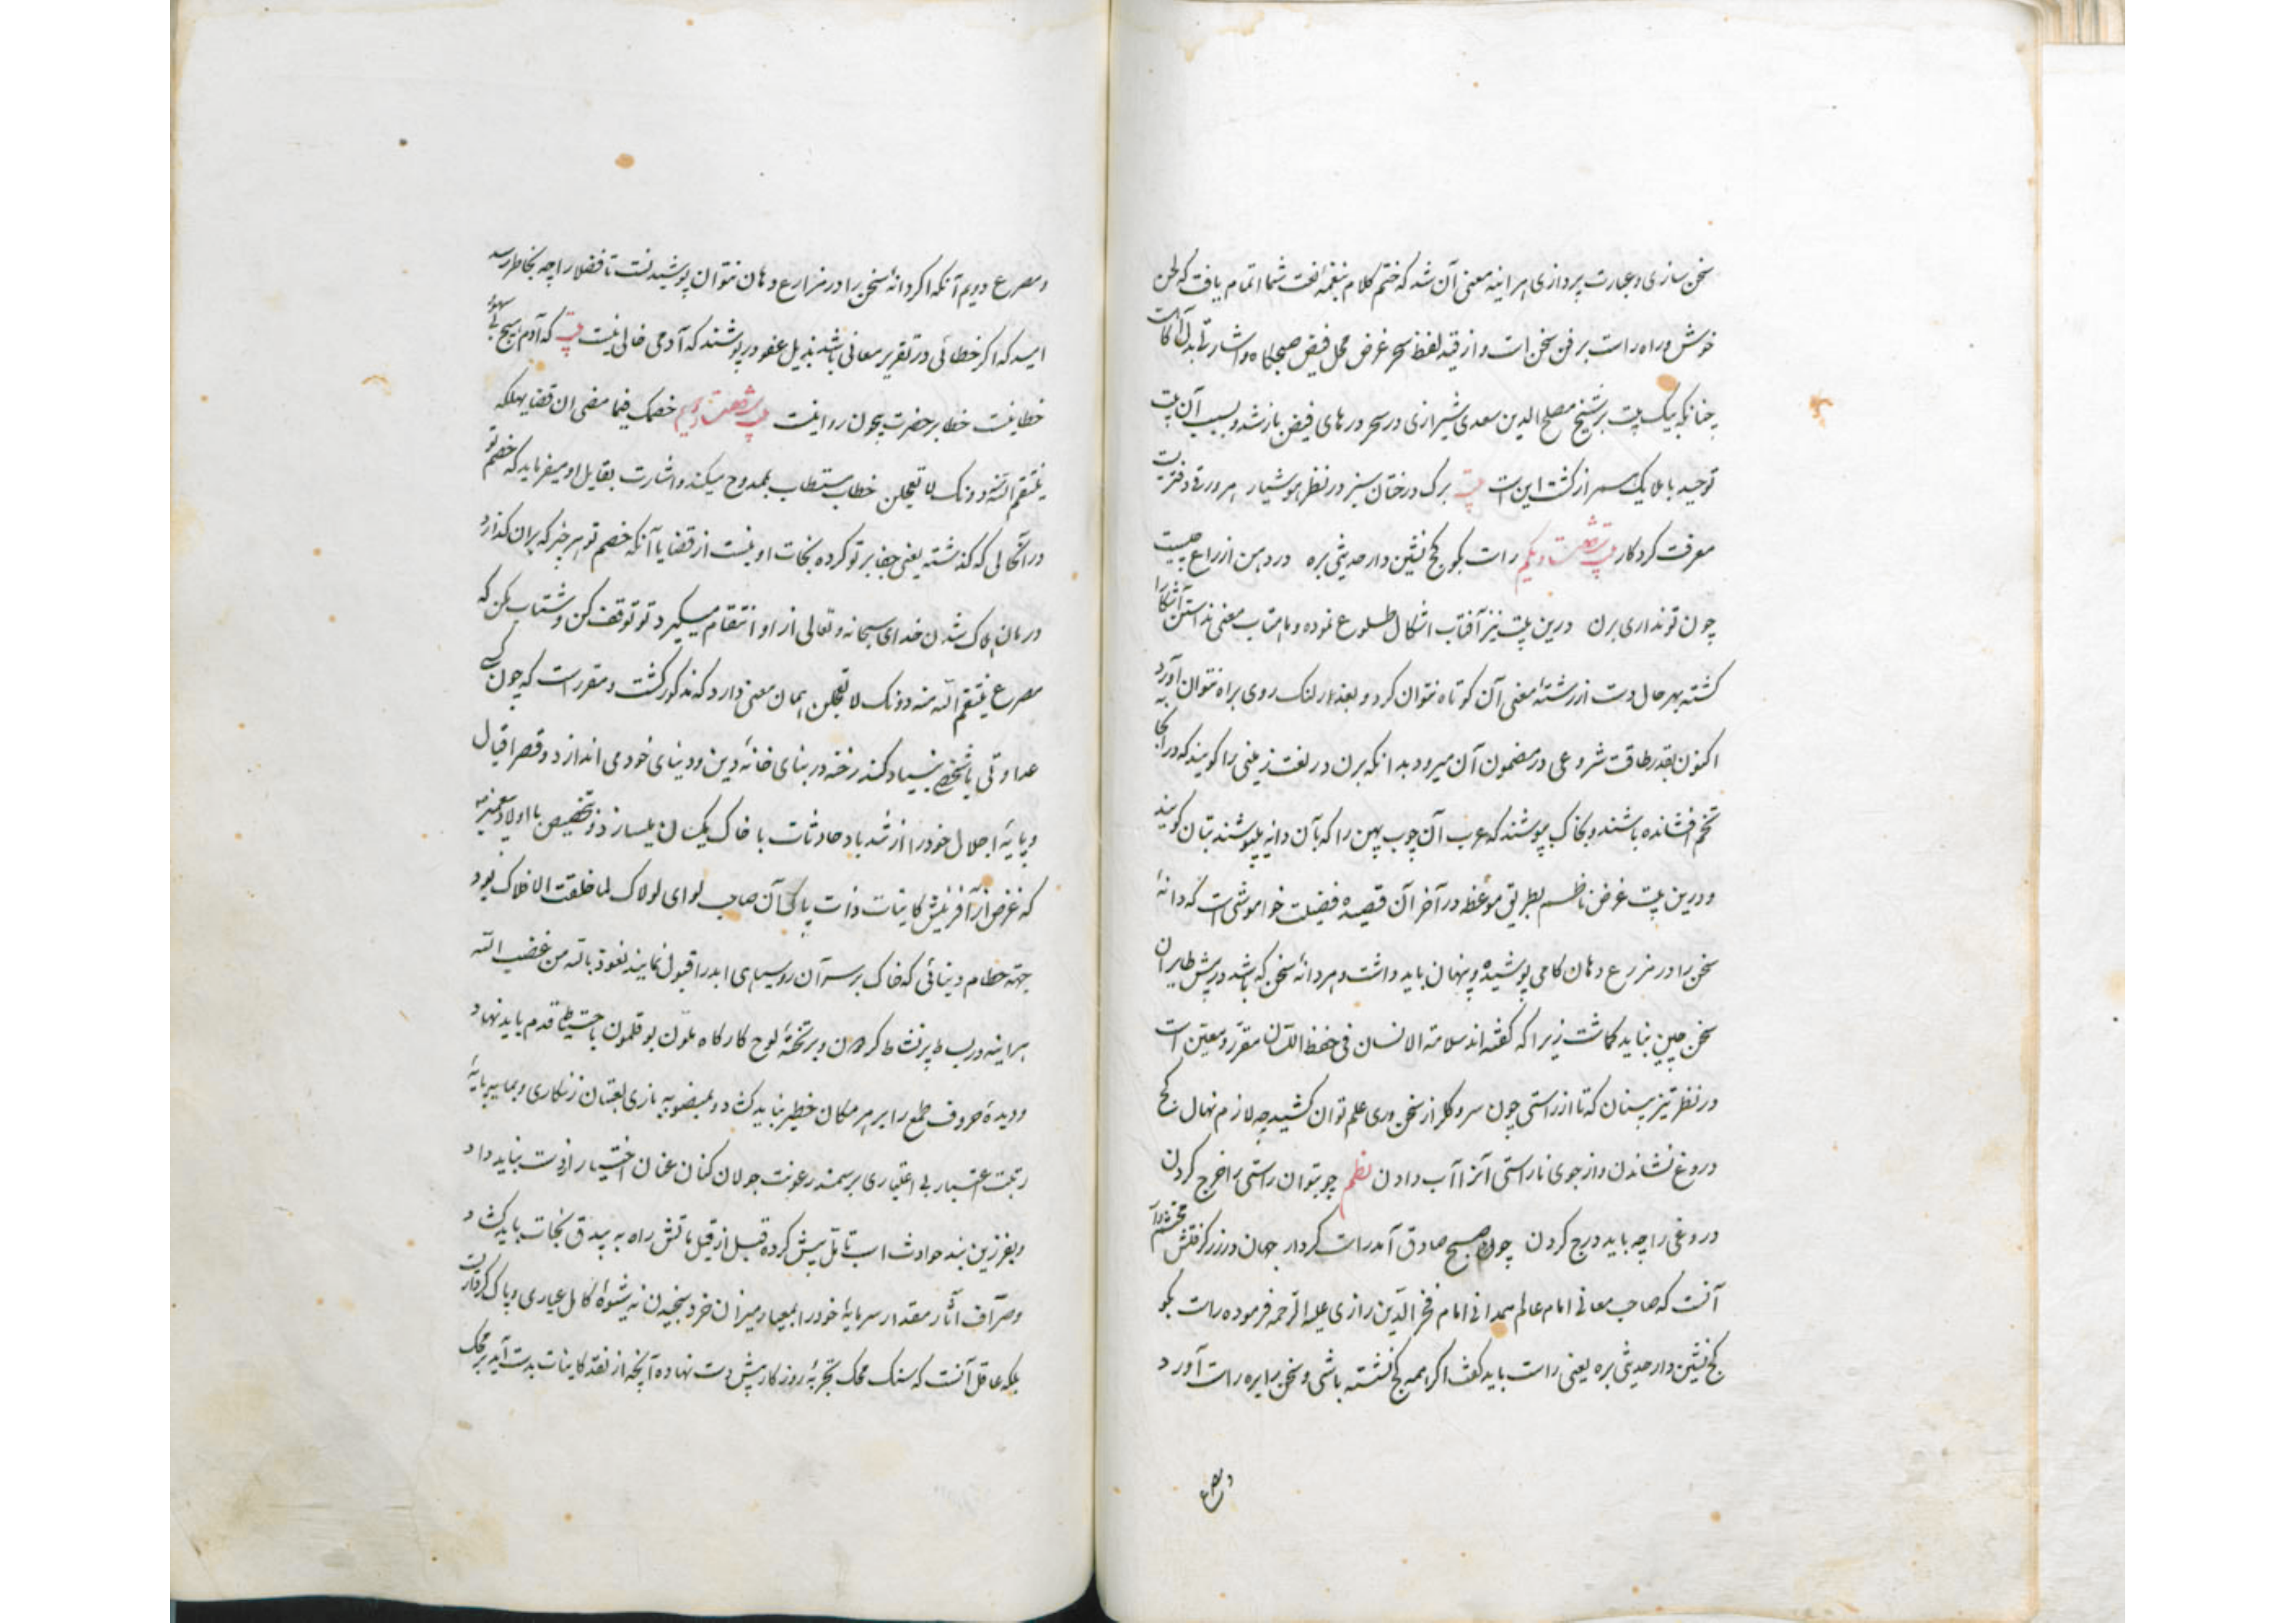 سخن سازی و عبارت پردازی هر اینه معنی آن شد که ختم کلام بنغمهٔ نعت شما اتمام یافت که لحن
خوش و راه راست بر فن سخن است و از قید لفظ سحر غرض محل فیض صبحگاه و اشارت بدل آگاهست
چنانکه بیک بیت بر شیخ مصلح الدین سعدی شیرازی در سحر درهای فیض باز شد و بسبب آن بیت
توحید با ملایک همسر از کشت این است بیت برک درختان سبز در نظر هوشیار هر ورقی دفتریست
معرفت کردکار بیت شصت و یکم راست بکو کج نشین دار حدیثی بره در دهن از راع چیست
چون تو نداری برن درین بیت نیز آفتاب اشکال طلوع نموده و ماهتاب معنی ندانستن آشکارا
کشته بهر حال دست از رشتهٔ معنی آن کوتاه نتوان کرد و بعذر لنک روی براه نتوان آورد
اکنون بقدر طاقت شروعی در مضمون آن میرود بدانکه برن در لغت زمینی را کویند که در آنجا
تخم افشانده باشند و بخاک بپوشند که عرب آن چوب پهن را که بآن دانه بپوشند بتان کویند
و درین بیت غرض ناظم بطریق موعظه در آخر آن قصیده فضیلت خواموشی است که دانهٔ
سخن را در مزرع دهان کامی پوشیده و پنهان باید داشت و هر دانهٔ سخن که باشد در پیش طایران
سخن چین نباید کماشت زیرا که کفته اند سلامة الانسان فی حفظ اللسان مقرر و معین است
در نظر تیز بینان که تا از راستی چون سرو کلزار سخن وری علم توان کشید چه لازم نهال کج
دروغ نشاندن و از جوی ناراستی آنرا آب دادن نظم چو بتوان راستی را خرج کردن
دروغی را چه باید درج کردن چون صبح صادق آمد راست کردار جهان در زر کرفتش محتشم وار
آنست که صاحب معانی امام عالم همدانی امام فخر الدین رازی علیه الرحمه فرموده راست بکو
کج نشین دار حدیثی بره یعنی راست باید کفت اکر همه کج نشسته باشی و سخن را بره راست آورد
و مصرع
و مصرع دویم آنکه اکر دانهٔ سخن را در مزارع دهان نتوان پوشید نست تا فضلا را چه بخاطر رسد
امید که اکر خطائی در تقریر معانی باشد بذیل عفو در پوشند که آدمی خالی نیست بیت که آدم هیچ بی سهو
خطا نیست خطا بر حضرت بیچون روا نیست بیت شصت و دویم خصمک فیما مضی ان قضایهلکه
ینتقم الله منه دونک لا تعجلن خطاب مستطاب بممدوح میکند و اشارت بقایل او میفرماید که خصم تو
در آنحالی که کذشته یعنی جفا بر تو کرده نجات او نیست از قضا یا آنکه خصم تو هر چیز که بران کذارد
در مان هلاک شدن خدای سبحانه و تعالی از او انتقام میکیرد تو توقف کن و شتاب مکن که
مصرع ینتقم الله منه دونک لا تعجلن همان معنی دارد که مذکور کشت و مقرر است که چون کسی
عداوتی با شخصی بنیاد کند رخنه در بنای خانهٔ دین و دنیای خود می اندازد و قصر اقبال
و پایهٔ اجلال خود را از تند باد حادثات با خاک یکسان میسازد و تخصیص با اولاد
که غرض از آفرینش کاینات ذات پاک آن صاحب لوای لولاک لما خلقت الافلاک بود
جهة حطام دنیائی که خاک بر سر آن روسیاهی ابد را قبول نمایند نعوذ بالله من غضب الله
هر اینه در بساط پر نشاط کردون و بر تختهٔ لوح کارکاه ملون بوقلمون باحتیاط قدم باید نهاد
و دیدهٔ حروف طمع را بر هر مکان خطیر نباید کشاد و بمنصوبه بازی لعبتان زنکاری و بما بپیرایهٔ
رتبت اعتبار بی اعتباری بر سمند رعونت جولان کنان عنان اختیار از دست نباید داد
و بفرزین بند حوادث اسب تأمل پیش کرده قبل از قیل ماتش راه به بیدق نجات باید کشاد
و صراف آثار مقدار سرمایهٔ خود را بمعیار و میزان خرد سنجیدن نه شیوهٔ کامل عیاری و پاک کرداریست
بلکه عاقل آنست که سنک محک تجربهٔ روزکار پیش دست نهاده آنچه از نقد کاینات بدست آید بر محک